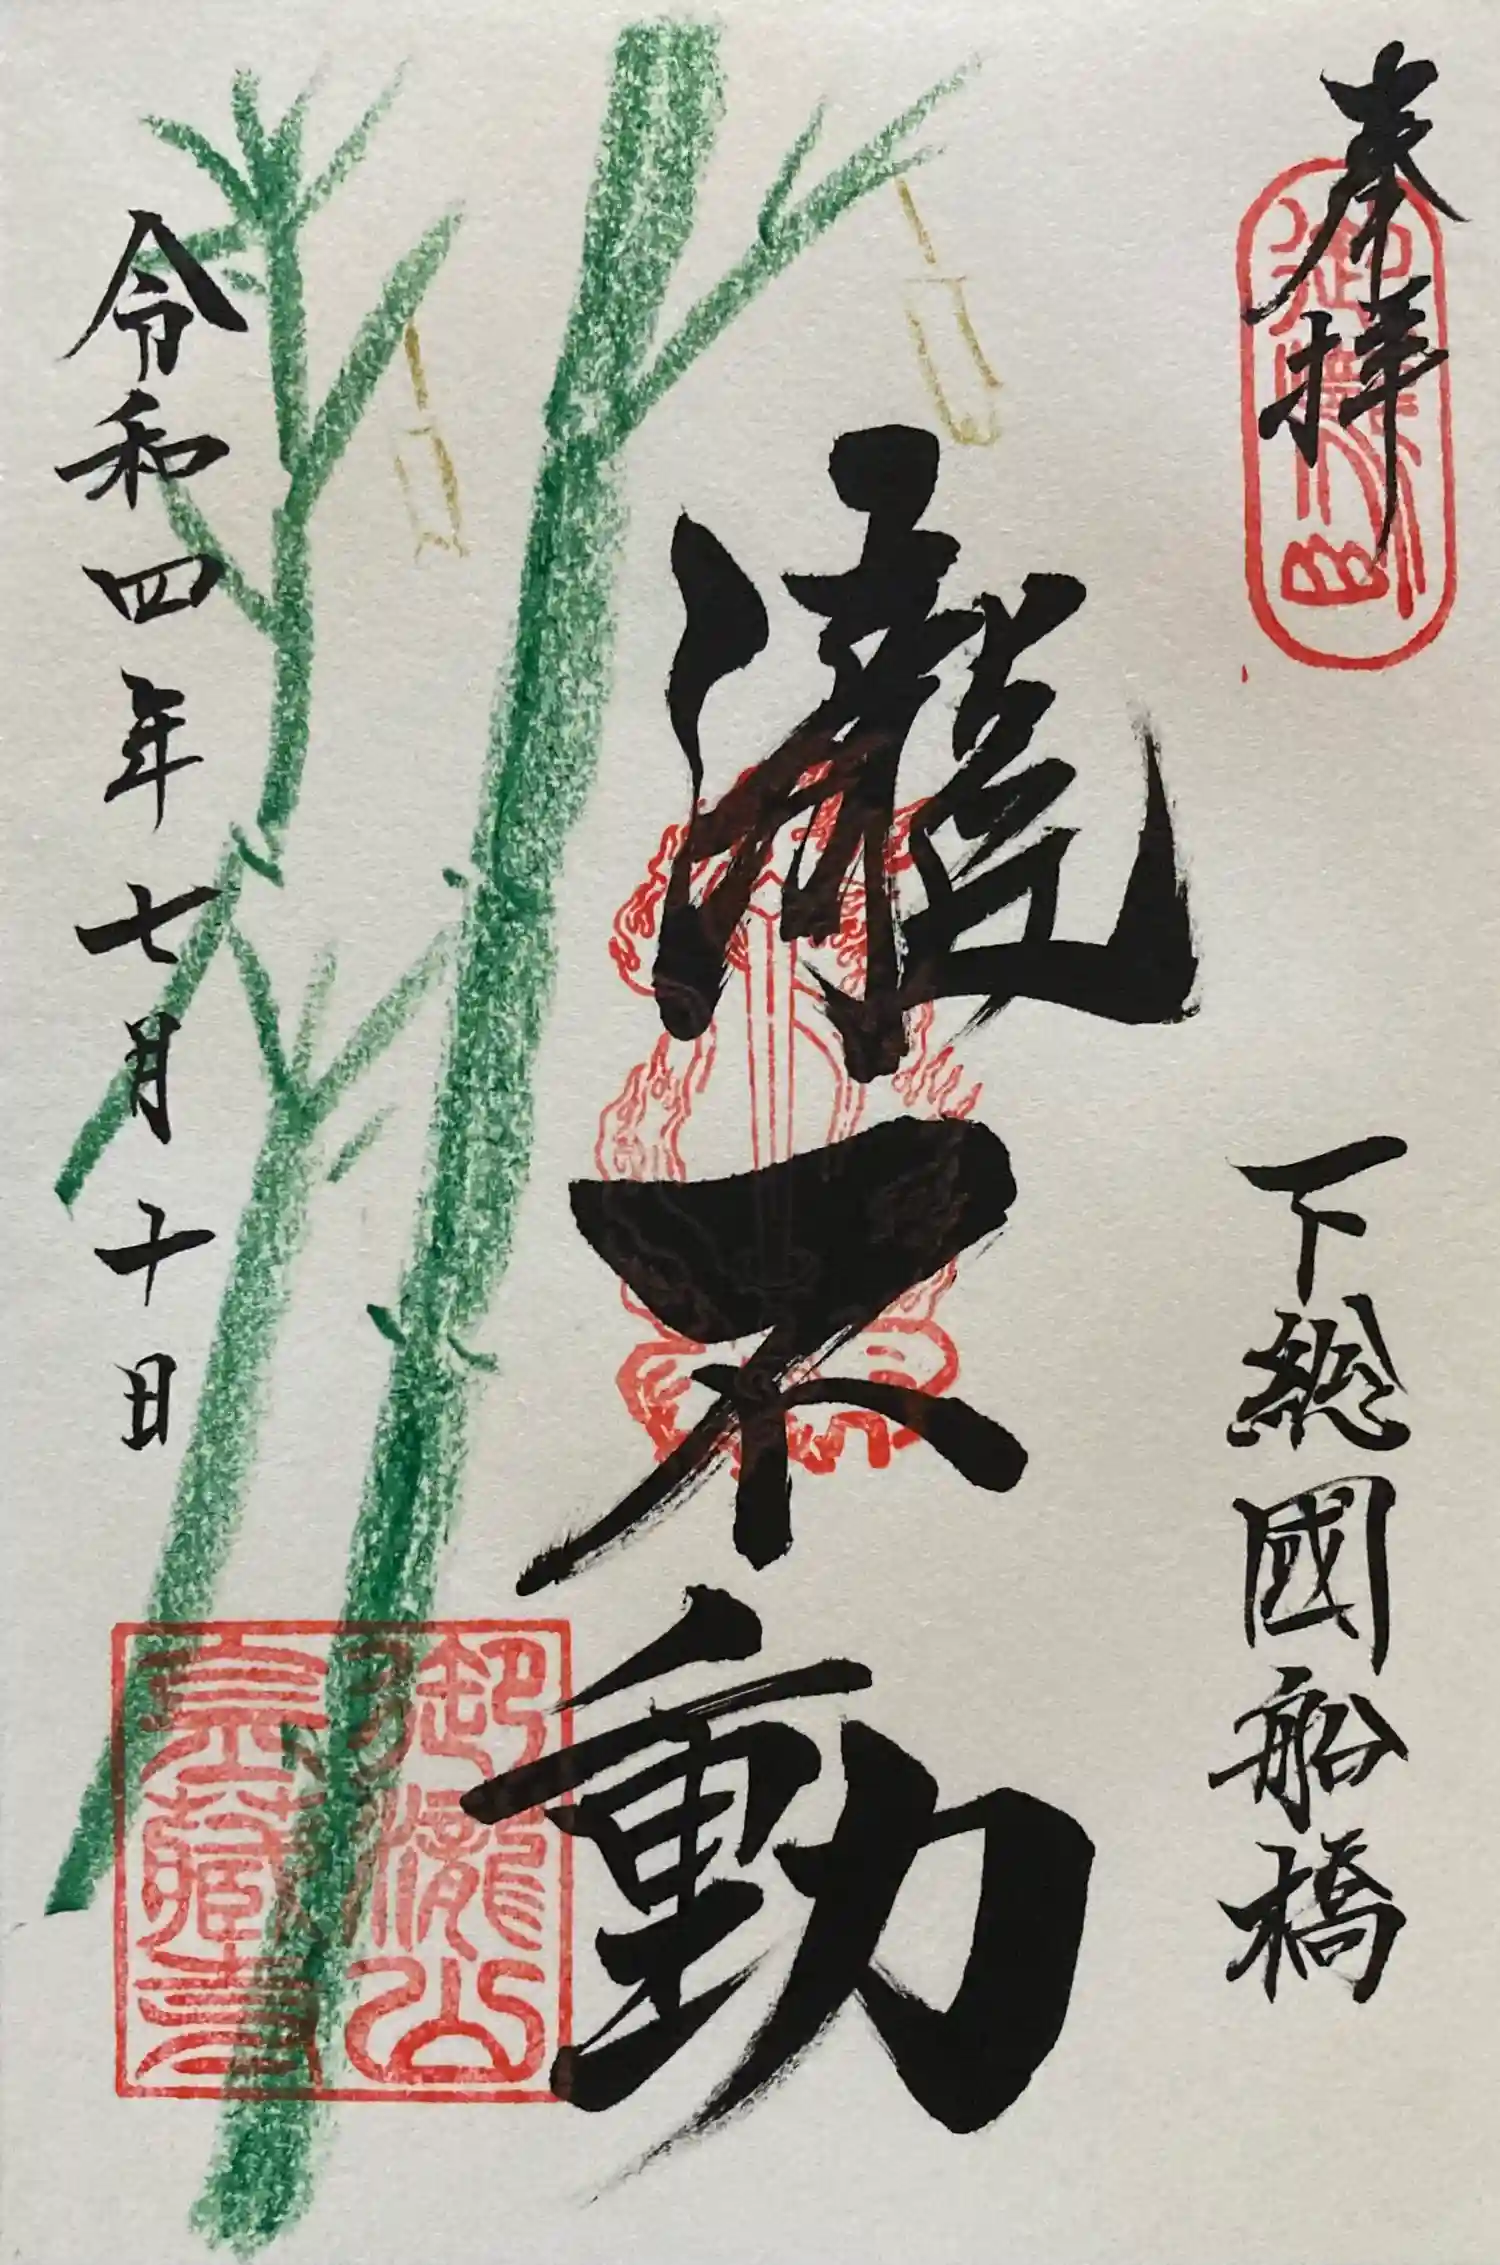 奉拝
下総國船橋
瀧不動
令和四年七月十日
御瀧山
金蔵寺